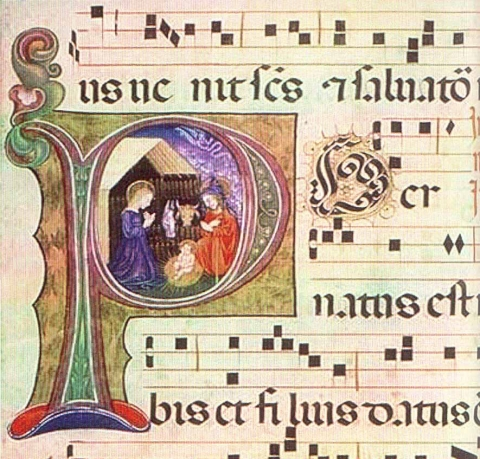 us ue nit sc̄s ⁊ saluatō
PUer
natus est
bis et fi lius datus